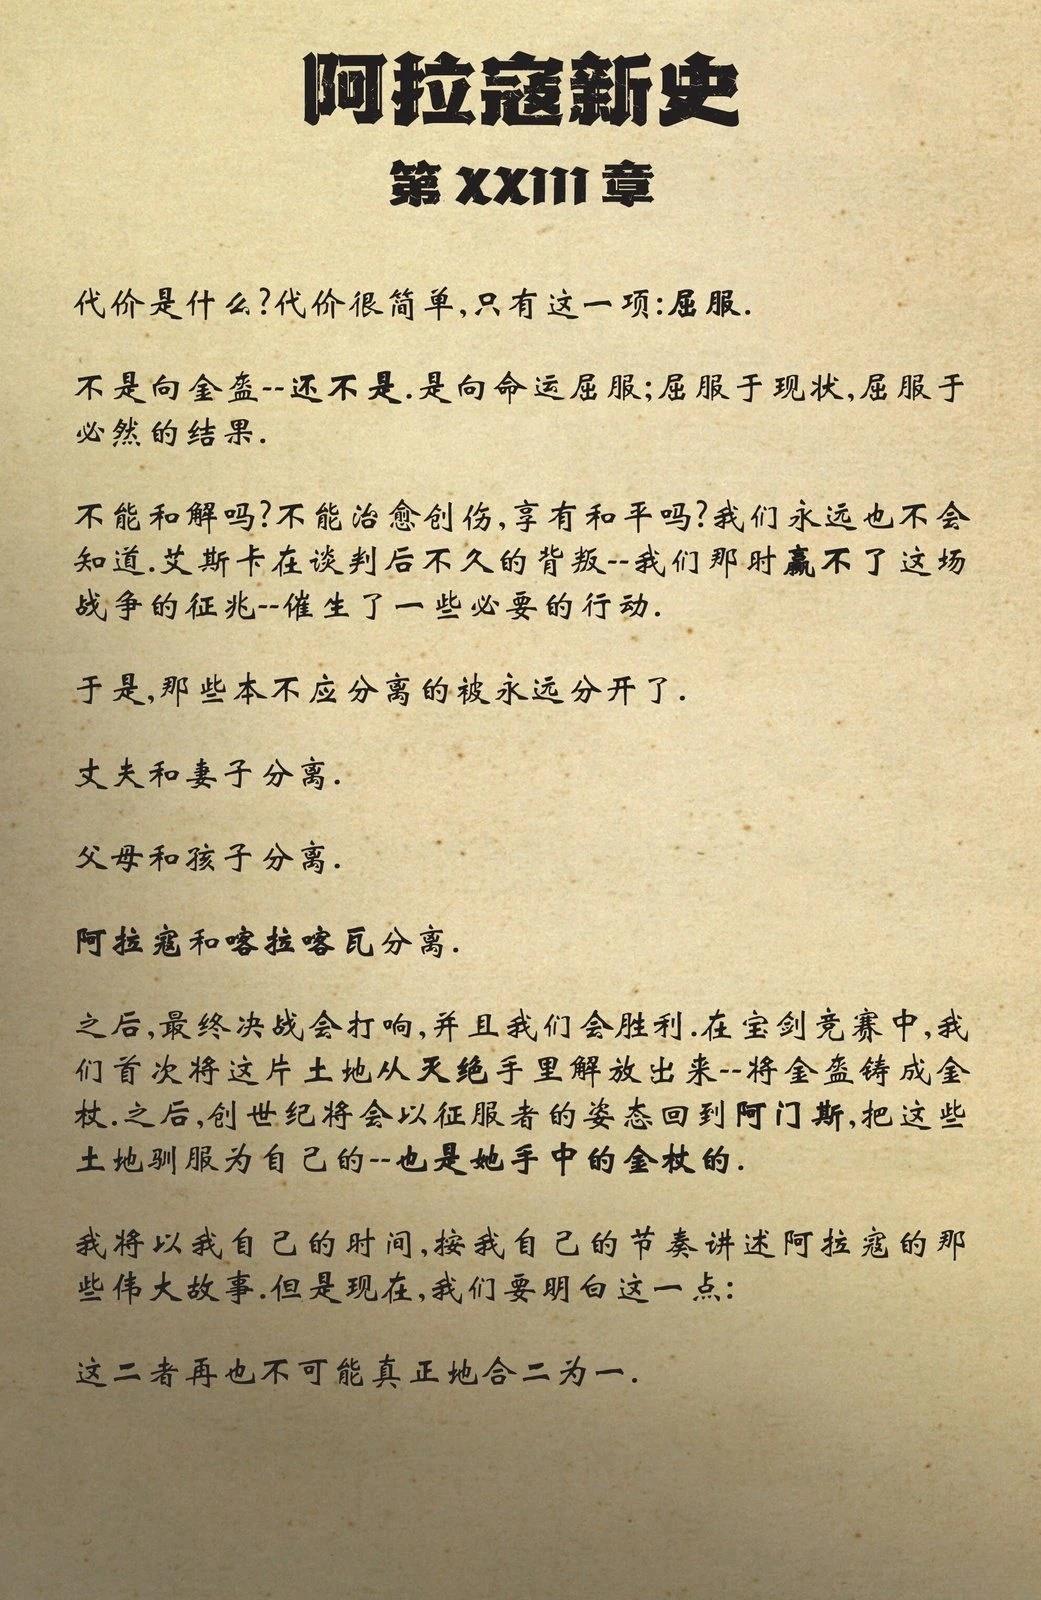 阿拉寇新史
第 XXIII 章
代价是什么?代价很简单,只有这一项:屈服.
不是向金盔--还不是.是向命运屈服;屈服于现状,屈服于
必然的结果.
不能和解吗?不能治愈创伤,享有和平吗?我们永远也不会
知道.艾斯卡在谈判后不久的背叛--我们那时赢不了这场
战争的征兆--催生了一些必要的行动.
于是,那些本不应分离的被永远分开了.
丈夫和妻子分离.
父母和孩子分离.
阿拉寇和喀拉喀瓦分离.
之后,最终决战会打响,并且我们会胜利.在宝剑竞赛中,我
们首次将这片土地从灭绝手里解放出来--将金盔铸成金
杖.之后,创世纪将会以征服者的姿态回到阿门斯,把这些
土地驯服为自己的--也是她手中的金杖的.
我将以我自己的时间,按我自己的节奏讲述阿拉寇的那
些伟大故事.但是现在,我们要明白这一点:
这二者再也不可能真正地合二为一.